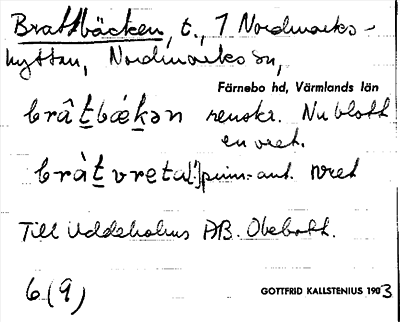 Brattbäcken, t., 1 Nordmarks-
hyttan, Nordmarks sn,
Färnebo hd, Värmlands län
brât̲bǽk̲ən renskr. Nu blott
en vret.
bràt̲vre̲ta[!] pinn.-ant. vret
Till Uddeholms AB. Obebott.
6 (9)
GOTTFRID KALLSTENIUS 1903